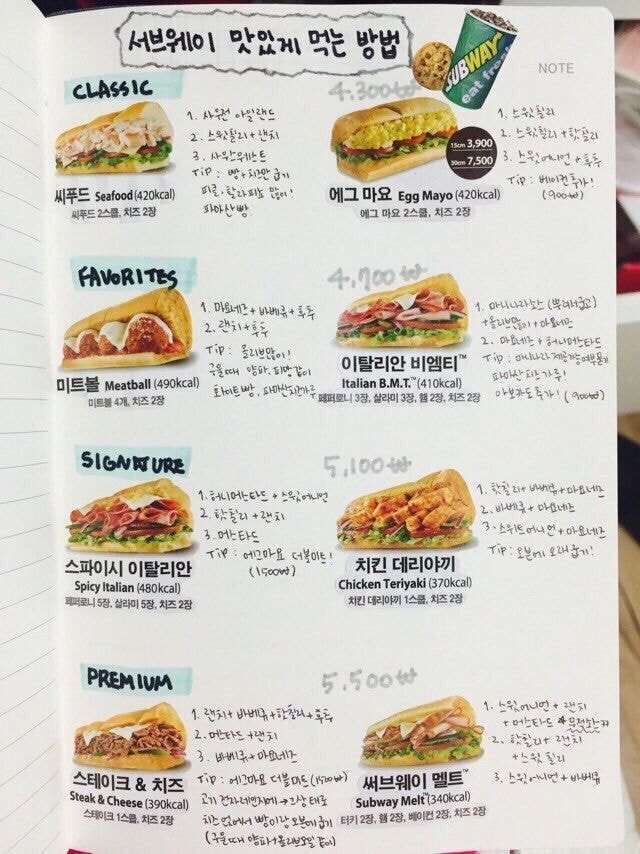 서브웨이 맛있게 먹는 방법
SUBWAY
eat fresh
NOTE
CLASSIC
4.300₩
1. 사우전 아일랜드
2. 스윗칠리+랜치
3. 사우스웨스트
TiP : 빵+치즈만 굽기
피클, 할라피뇨 많이!
파마산빵
씨푸드 Seafood (420kcal)
씨푸드 2스쿱, 치즈 2장
15cm 3,900
30cm 7,500
1. 스윗칠리
2. 스윗칠리+핫칠리
3. 스윗어니언+후추
Tip : 베이컨추가!
(900₩)
에그 마요 Egg Mayo (420kcal)
에그 마요 2스쿱, 치즈 2장
FAVORITES
4.700₩
1. 마요네즈+바베큐+후추
2. 랜치+후추
Tip : 올리브많이!
구울때 양파, 피망같이
화이트빵, 파마산치즈가루
미트볼 Meatball (490kcal)
미트볼 4개, 치즈 2장
1. 마리나라소스 (뿌려서굽고)
+올리브많이+마요네즈
2. 마요네즈+허니머스타드
Tip : 마리나라 제공가능여부묻기
파마산치즈가루!
아보카도추가! (900₩)
이탈리안 비엠티™
Italian B.M.T.™ (410kcal)
페퍼로니 3장, 살라미 3장, 햄 2장, 치즈 2장
SIGNATURE
5,100₩
1. 허니머스타드+스윗어니언
2. 핫칠리+랜치
3. 머스타드
Tip : 에그마요 더블미트!
(1500₩)
스파이시 이탈리안
Spicy Italian (480kcal)
페퍼로니 5장, 살라미 5장, 치즈 2장
1. 핫칠리+바베큐+마요네즈
2. 바베큐+마요네즈
3. 스위트어니언+마요네즈
Tip : 오븐에 오래굽기!
치킨 데리야끼
Chicken Teriyaki (370kcal)
치킨 데리야끼 1스쿱, 치즈 2장
PREMIUM
5.500₩
1. 랜치+바베큐+핫칠리+후추
2. 머스타드+랜치
3. 바베큐+마요네즈
Tip : 에그마요 더블미트(1500₩)
고기 전자레인지에→그상태로
치즈얹어서 빵이랑오븐에굽기
(구울때 양파+올리브오일같이)
스테이크 & 치즈
Steak & Cheese (390kcal)
스테이크 1스쿱, 치즈 2장
1. 스윗어니언+랜치
+머스타드
2. 핫칠리+랜치
+스윗칠리
3. 스윗어니언+바베큐
써브웨이 멜트™
Subway Melt™ (340kcal)
터키 2장, 햄 2장, 베이컨 2장, 치즈 2장